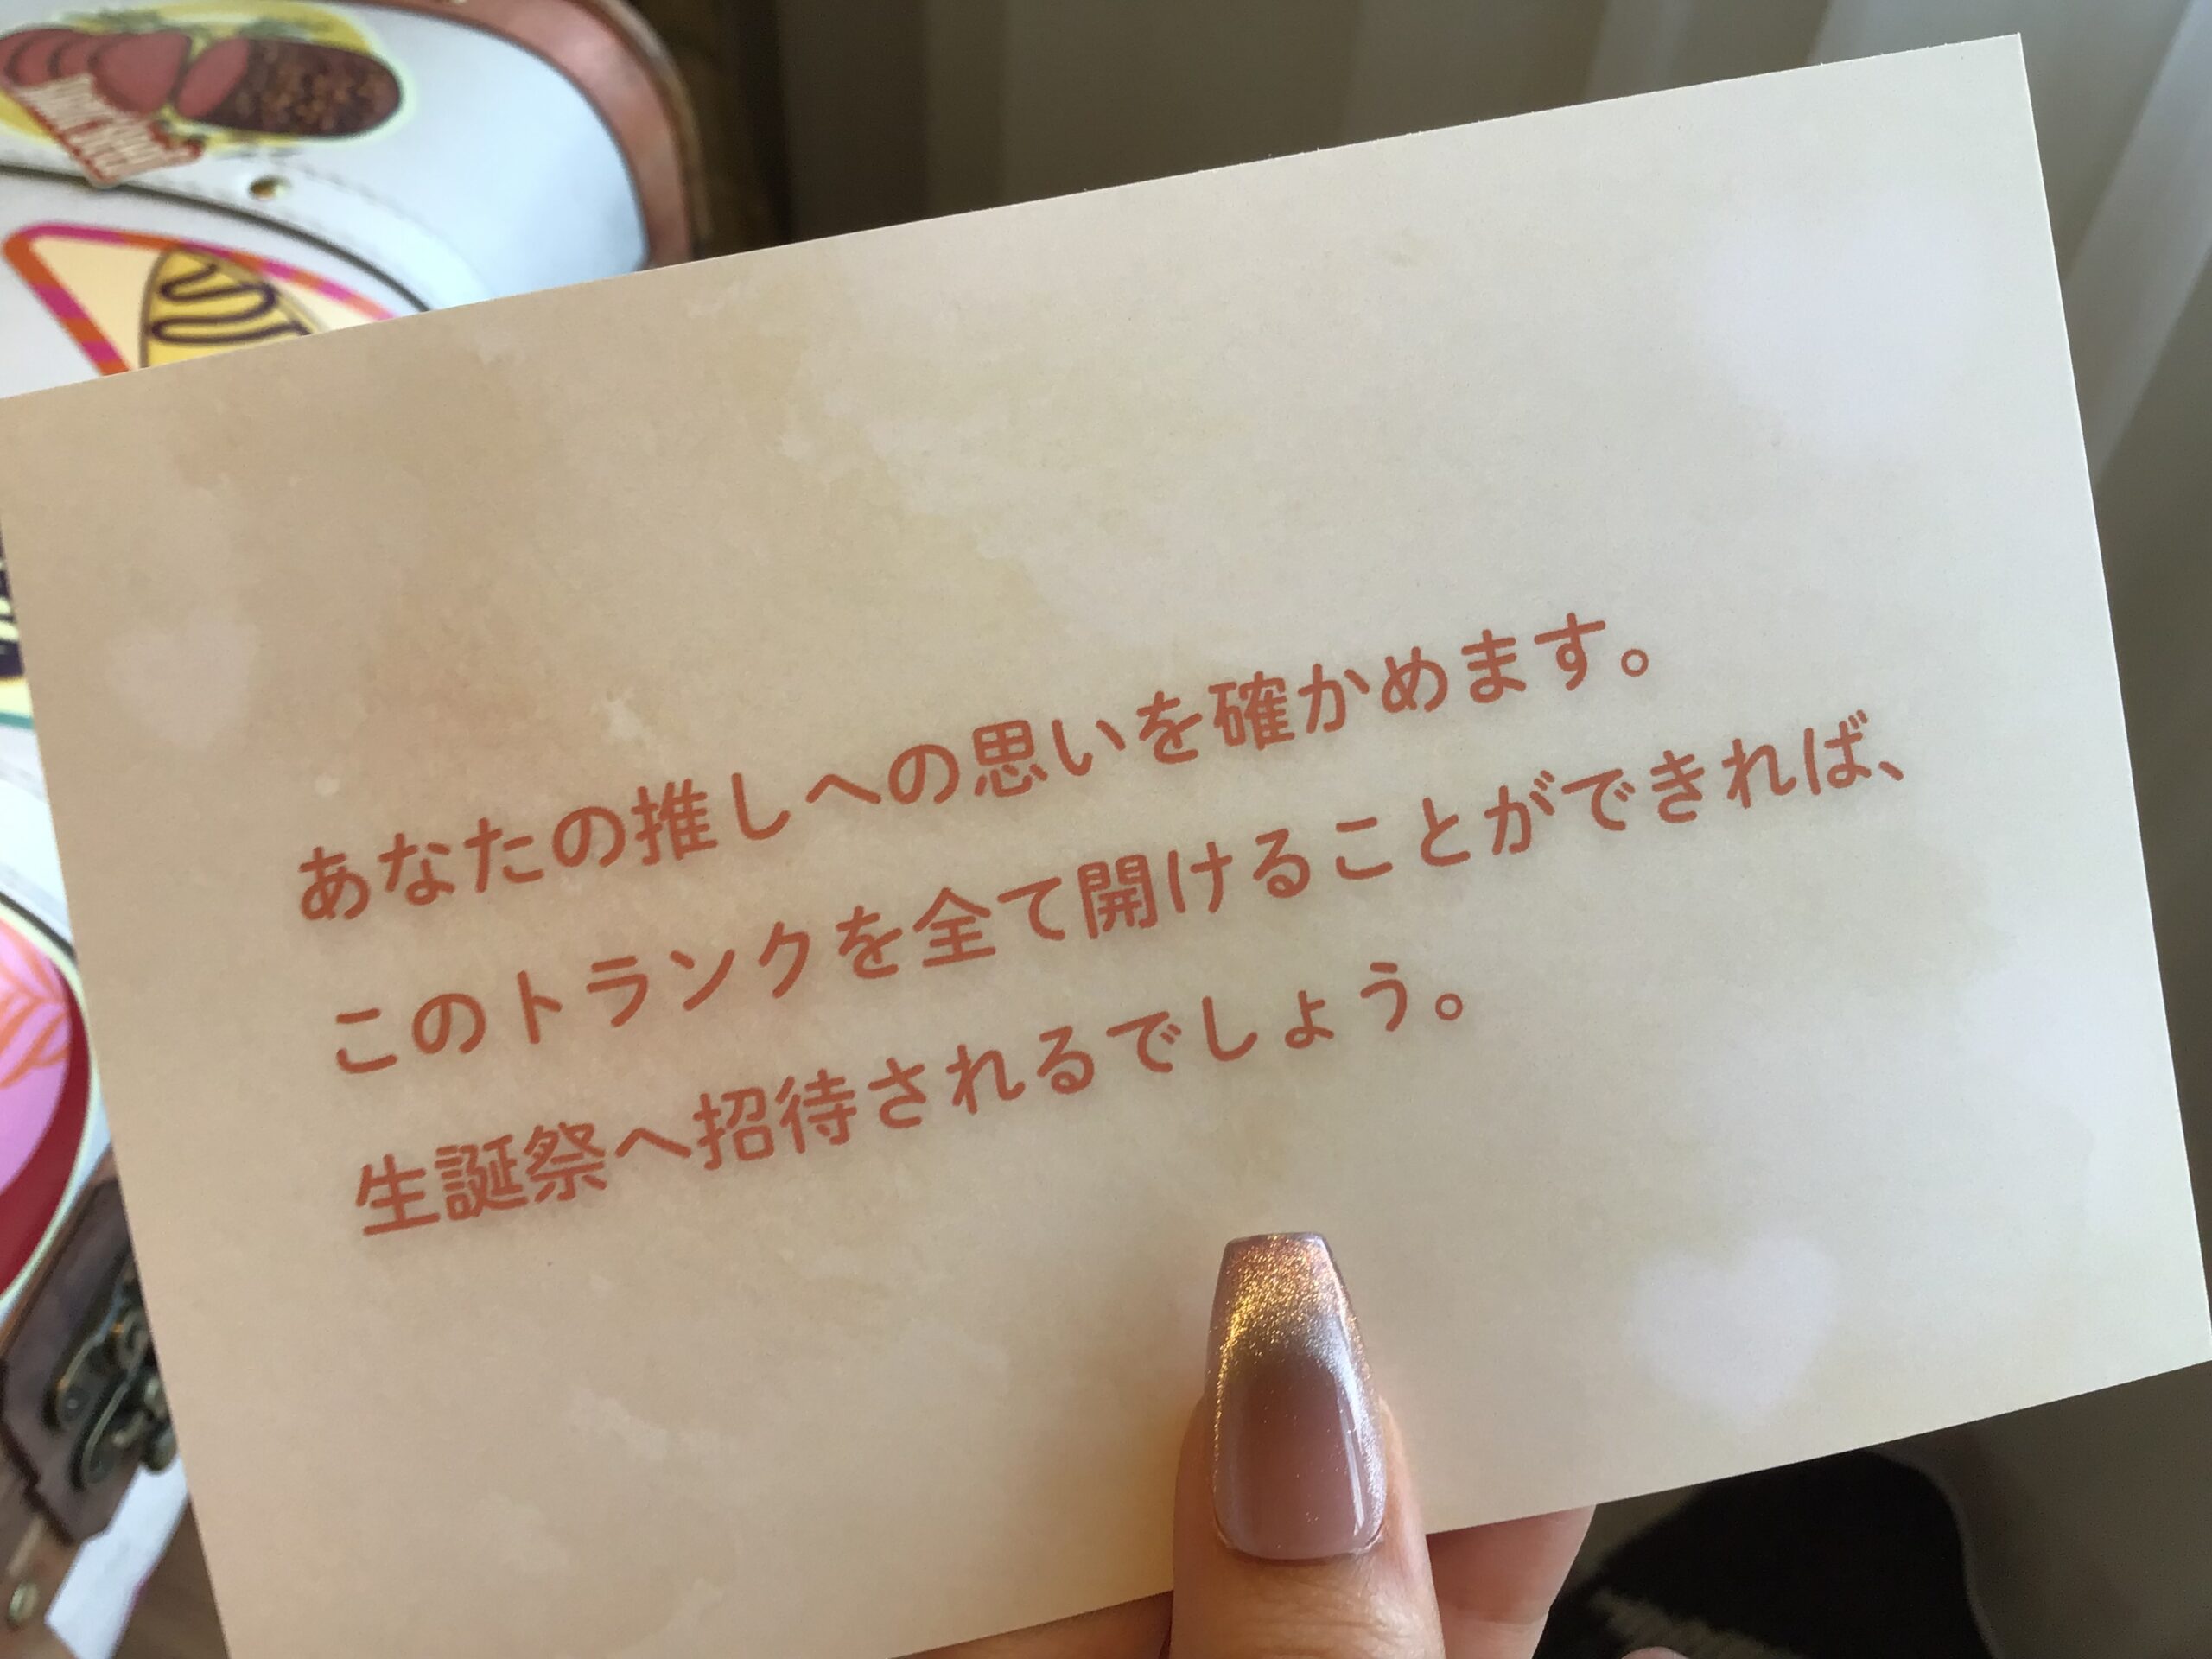 あなたの推しへの思いを確かめます。
このトランクを全て開けることができれば、
生誕祭へ招待されるでしょう。